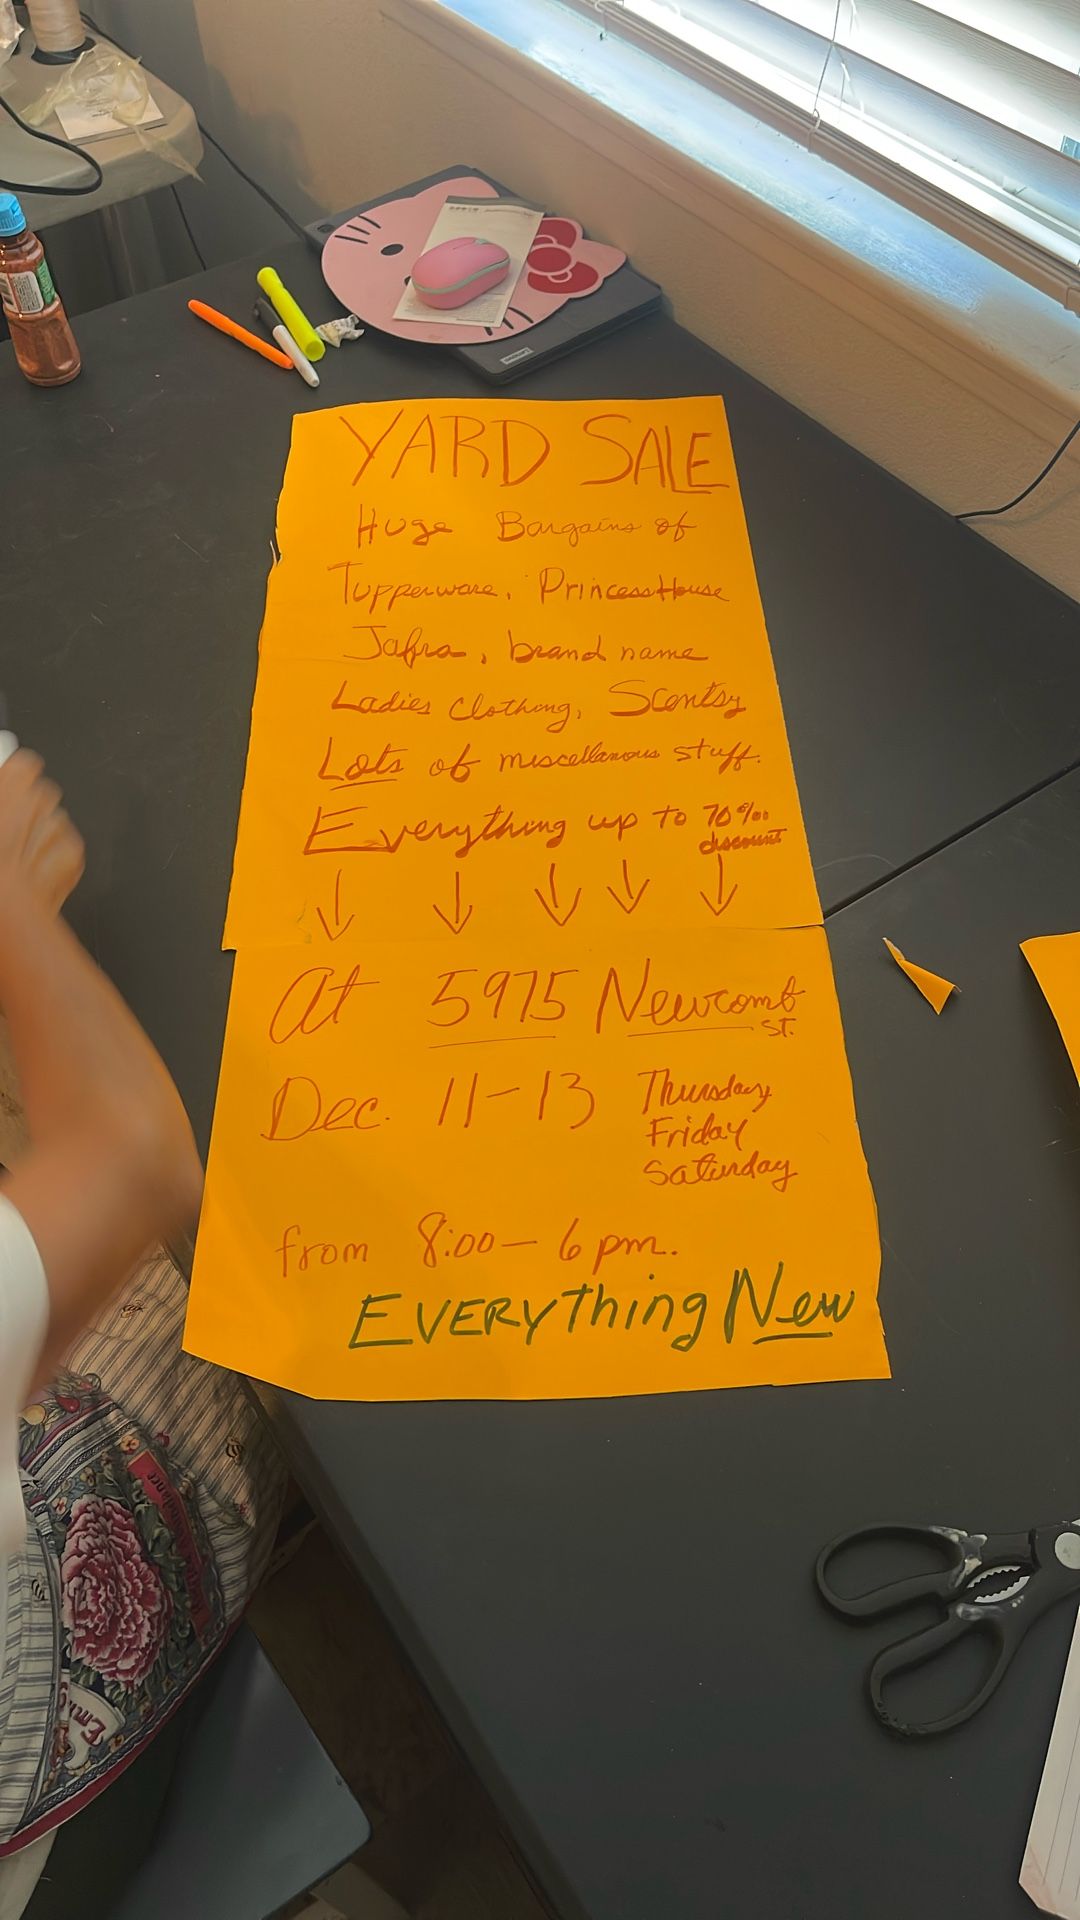 YARD SALE
Huge Bargains of
Tupperware, Princess House
Jafra, brand name
Ladies Clothing, Scentsy
Lots of miscellanous stuff.
Everything up to 70%
discount
At 5975 Newcomb
St.
Dec. 11-13 Thursday
Friday
Saturday
from 8:00- 6 pm.
EVERYthing New